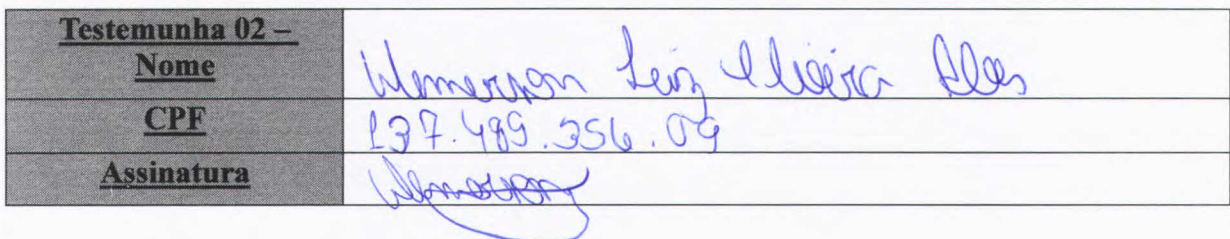 Testemunha 02 –
Nome
Wemerson Luiz Oliveira Alves
CPF
137.489.356.09
Assinatura
Wemerson